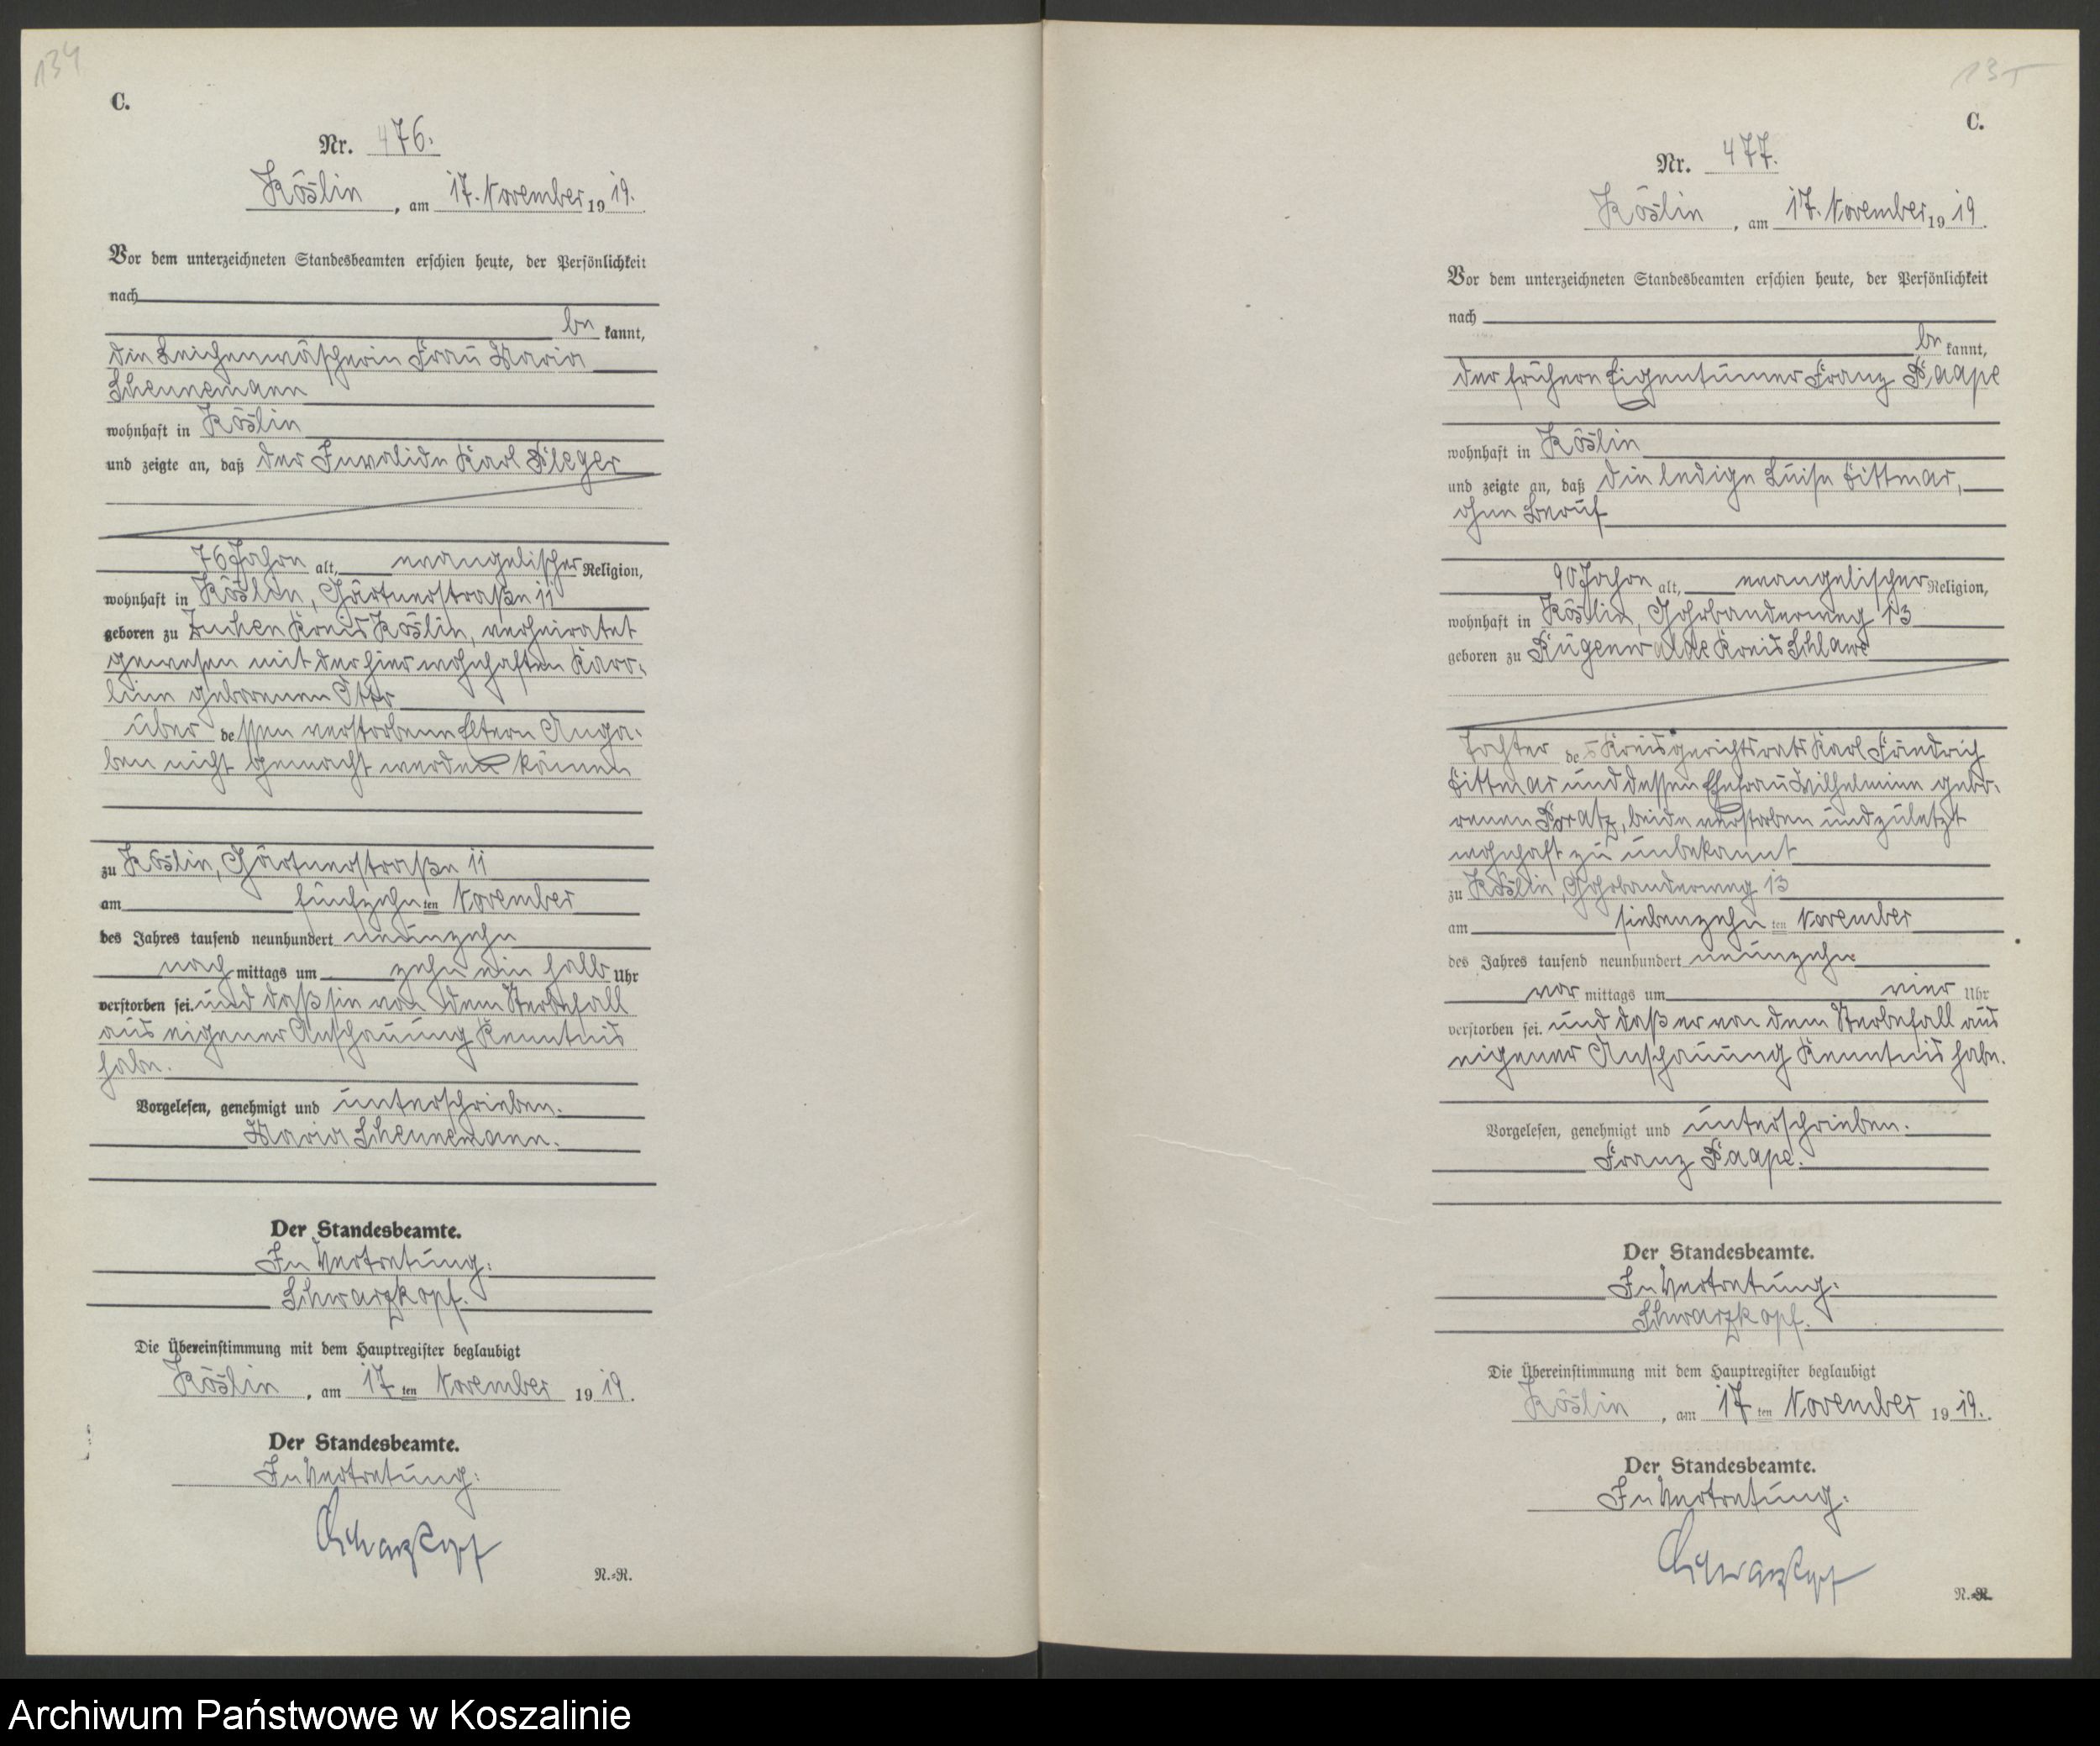 134
C.
Nr. 476.
Köslin, am 17. November 1919.
Vor dem unterzeichneten Standesbeamten erschien heute, der Persönlichkeit
nach
be kannt,
die Leichenwäscherin Frau Maria
Schennemann
wohnhaft in Köslin
und zeigte an, daß der Invalide Karl Pleger
76 Jahre alt, evangelischer Religion,
wohnhaft in Köslin, Gärtnerstraße 11
geboren zu Zuchen Kreis Köslin, verheiratet
gewesen mit der hier wohnhaften Karo-
line geborenen
über dessen verstorbene Eltern Anga-
ben nicht gemacht werden können
zu Köslin, Gärtnerstraße 11
am fünfzehnten November
des Jahres tausend neunhundert neunzehn
nach mittags um zehn ein halb Uhr
verstorben sei. und daß sie von dem Sterbefall
aus eigener Anschauung Kenntnis
habe.
Vorgelesen, genehmigt und unterschrieben.
Maria Schennemann.
Der Standesbeamte.
In Vertretung:
Schwarzkopf.
Die Übereinstimmung mit dem Hauptregister beglaubigt
Köslin, am 17ten November 1919.
Der Standesbeamte.
In Vertretung:
Schwarzkopf
N.=R.
135
C.
Nr. 477.
Köslin, am 17. November 1919.
Vor dem unterzeichneten Standesbeamten erschien heute, der Persönlichkeit
nach
be kannt,
der frühere Eigentümer Franz Paape
wohnhaft in Köslin
und zeigte an, daß die ledige Luise Dittmar,
ohne Beruf
90 Jahre alt, evangelischer Religion,
wohnhaft in Köslin, Gohrbanderweg 13
geboren zu Rügenwalde Kreis Schlawe
Tochter des Kreisgerichtsrats Karl Friedrich
Dittmar und dessen Ehefrau Wilhelmine gebo-
renen Poratz, beide verstorben und zuletzt
wohnhaft zu unbekannt
zu Köslin, Gohrbanderweg 13
am siebenzehnten November
des Jahres tausend neunhundert neunzehn
vor mittags um vier Uhr
verstorben sei. und daß er von dem Sterbefall aus
eigener Anschauung Kenntnis habe.
Vorgelesen, genehmigt und unterschrieben.
Franz Paape.
Der Standesbeamte.
In Vertretung:
Schwarzkopf.
Die Übereinstimmung mit dem Hauptregister beglaubigt
Köslin, am 17ten November 1919.
Der Standesbeamte.
In Vertretung:
Schwarzkopf
N.=R.
Archiwum Państwowe w Koszalinie